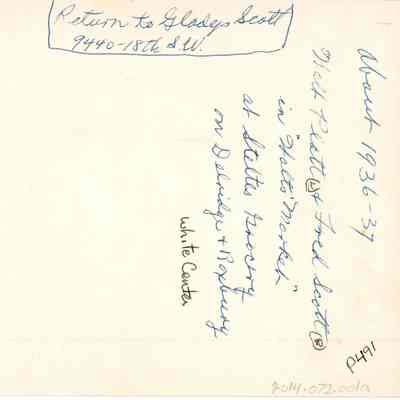 Return to Gladys Scott
9440-18th S.W.
About 1936-37
Walt Piatt (L) & Fred Scott (R)
in "Walts Market"
at Steltes Grocery
on Delridge & Roxbury
White Center
P491
2014.072.001a